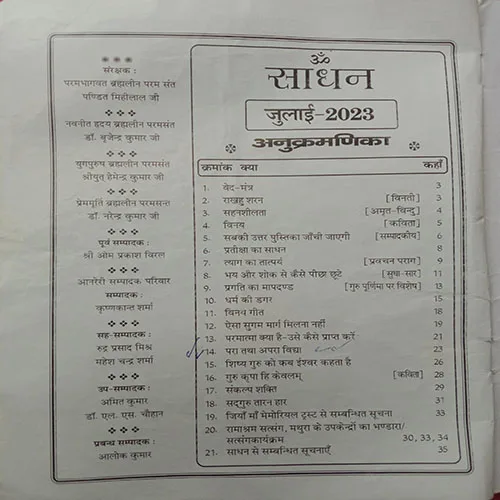 संरक्षक :
परमभागवत ब्रह्मलीन परम संत
पण्डित मिहीलाल जी
नवनीत हृदय ब्रह्मलीन परमसंत
डॉ. बृजेन्द्र कुमार जी
युगपुरुष ब्रह्मलीन परमसंत
श्रीयुत् हेमेन्द्र कुमार जी
प्रेममूर्ति ब्रह्मलीन परमसन्त
डॉ. नरेन्द्र कुमार जी
पूर्व सम्पादक :
श्री ओम प्रकाश विरल
आनरेरी सम्पादक परिवार
सम्पादक :
कृष्णकान्त शर्मा
सह-सम्पादक :
रुद्र प्रसाद मिश्र
महेश चन्द्र शर्मा
उप-सम्पादक :
अमित कुमार
डॉ. एल. एस. चौहान
प्रबन्ध सम्पादक :
आलोक कुमार
ॐ
साधन
जुलाई-2023
अनुक्रमणिका
क्रमांक क्या कहाँ
1. वेद-मंत्र 3
2. राखहु शरन [विनती] 3
3. सहनशीलता [अमृत-विन्दु] 4
4. विनय [कविता] 5
5. सबकी उत्तर पुस्तिका जाँची जाएगी [सम्पादकीय] 6
6. प्रतीक्षा का साधन 8
7. त्याग का तात्पर्य [प्रवचन पराग] 9
8. भय और शोक से कैसे पीछा छूटे [सुधा-सार] 11
9. प्रगति का मापदण्ड [गुरु पूर्णिमा पर विशेष] 13
10. धर्म की डगर 15
11. विनय गीत 18
12. ऐसा सुगम मार्ग मिलना नहीं 19
13. परमात्मा क्या है-उसे कैसे प्राप्त करें 21
14. परा तथा अपरा विद्या 23
15. शिष्य गुरु को कब ईश्वर कहता है 26
16. गुरु कृपा हि केवलम् [कविता] 28
17. संकल्प शक्ति 29
18. सद्गुरु तारन हार 31
19. जियाँ माँ मेमोरियल ट्रस्ट से सम्बन्धित सूचना 33
20. रामाश्रम सत्संग, मथुरा के उपकेन्द्रों का भण्डारा/
सत्संगकार्यक्रम 30, 33, 34
21. साधन से सम्बन्धित सूचनाएँ 35